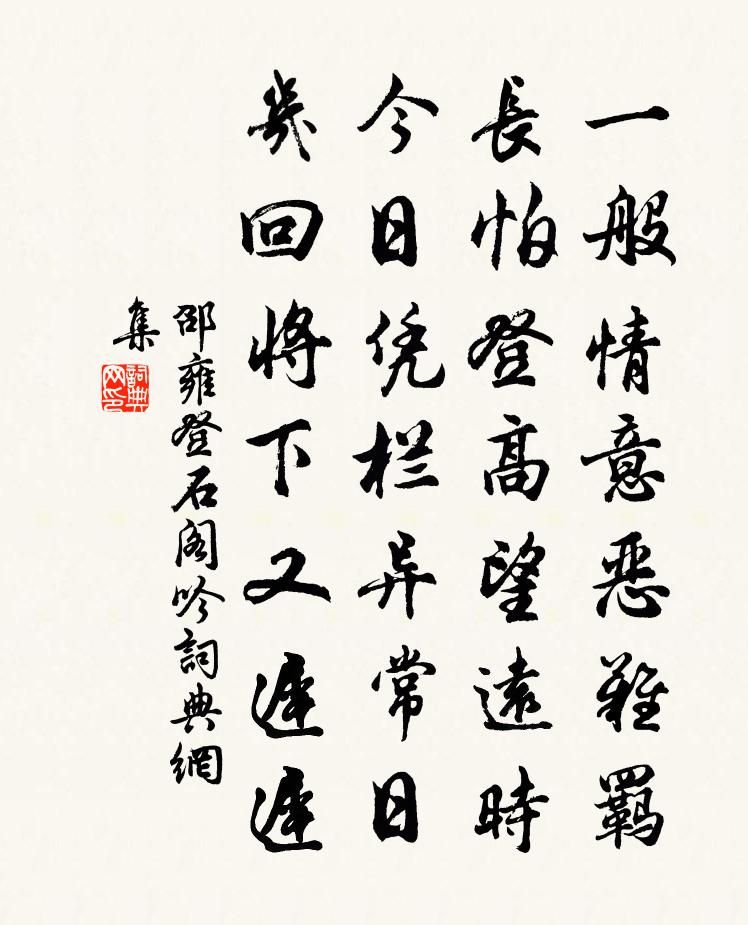 一般情意恶難羈
長怕登高望遠時
今日凭栏异常日
幾回將下又遲遲
邵雍登石阁吟詞典網
集
詞典网印